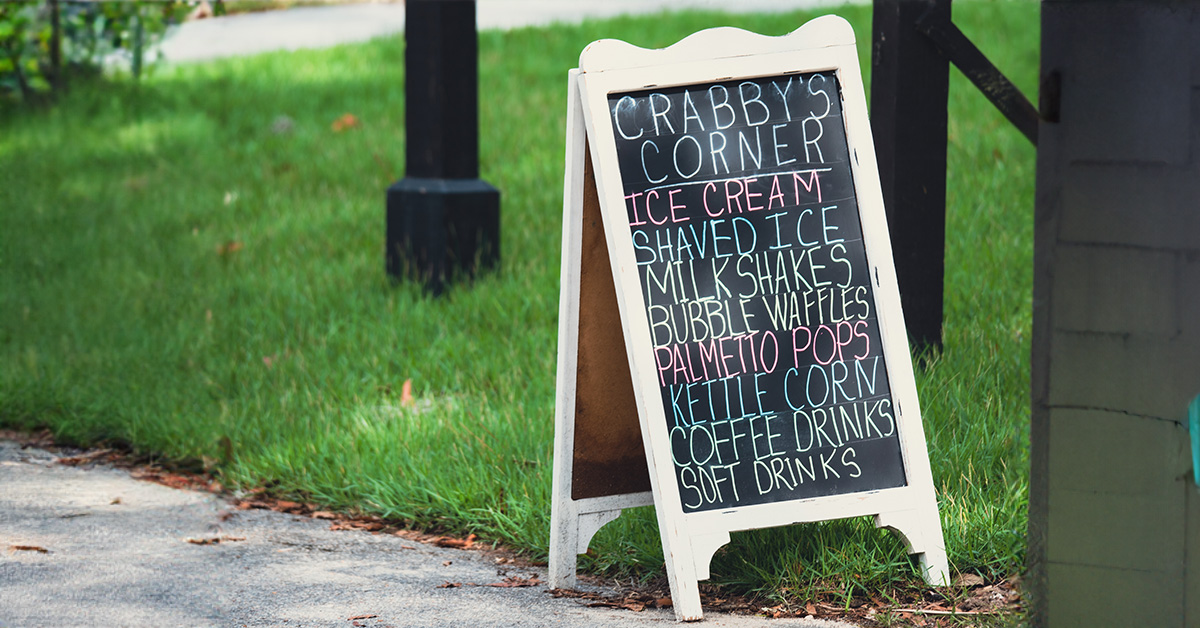 CRABBY'S
CORNER
ICE CREAM
SHAVED ICE
MILK SHAKES
BUBBLE WAFFLES
PALMETTO POPS
KETTLE CORN
COFFEE DRINKS
SOFT DRINKS